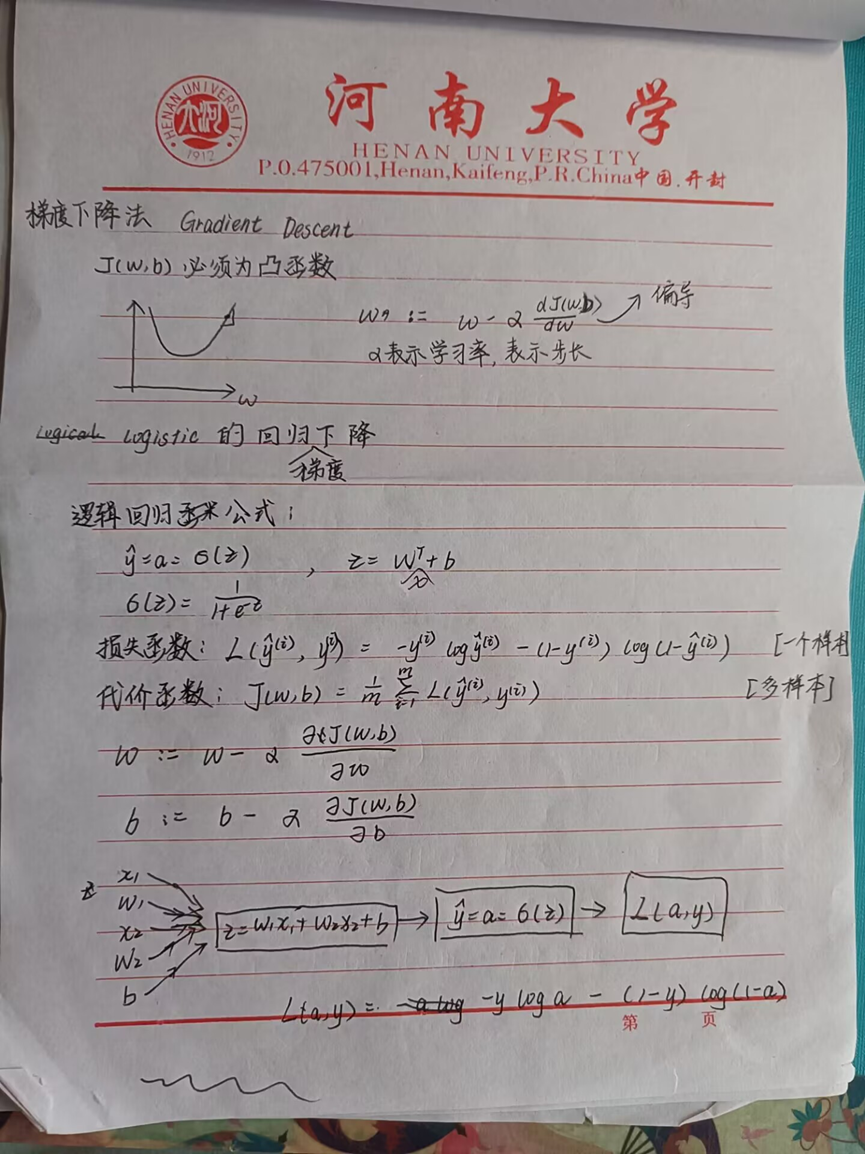 HENAN UNIVERSITY
大河
1912
河南大学
HENAN UNIVERSITY
P.O.475001,Henan,Kaifeng,P.R.China中国.开封
梯度下降法 Gradient Descent
J(w,b) 必须为凸函数
w := w - α dJ(w,b)/dw 偏导
α表示学习率,表示步长
w
Logical Logistic 的回归下降
梯度
逻辑回归 公式:
ŷ=a=σ(z) , z= wᵀ+b
x
σ(z)= 1/(1+e^-z)
损失函数: L(ŷ⁽ⁱ⁾, y⁽ⁱ⁾) = -y⁽ⁱ⁾ log ŷ⁽ⁱ⁾ - (1-y⁽ⁱ⁾) log(1-ŷ⁽ⁱ⁾) [一个样本
代价函数: J(w,b) = 1/m Σᵢ₌₁ᵐ L(ŷ⁽ⁱ⁾, y⁽ⁱ⁾) [多样本]
w := w - α ∂J(w,b)/∂w
b := b - α ∂J(w,b)/∂b
x₁
w₁
x₂
w₂
b
z=w₁x₁+w₂x₂+b → ŷ=a=σ(z) → L(a,y)
L(a,y) = -a log -y log a - (1-y) log(1-a)
第 页